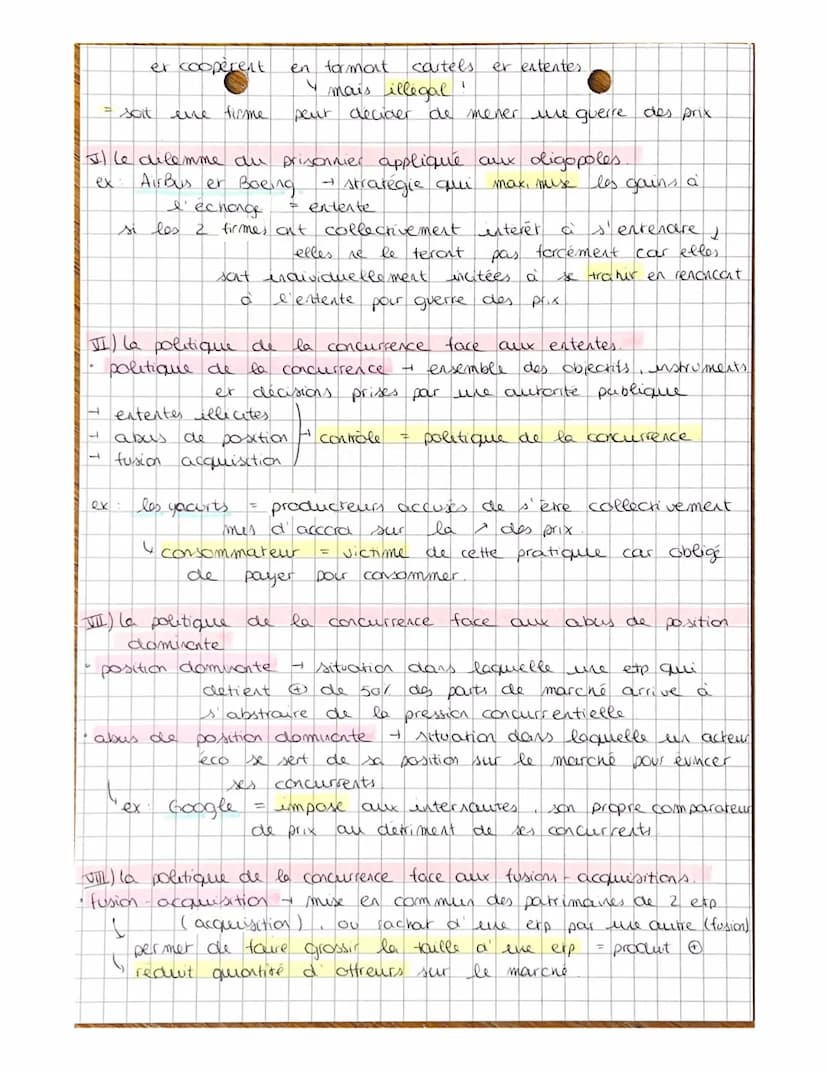 et coopèrent en formant cartels et ententes
↳ mais illégal !
= soit une firme peut décider de mener une guerre des prix
V) Le dilemme du prisonnier appliqué aux oligopoles.
ex : AirBus et Boeing → stratégie qui maximise les gains à
l'échange = entente
si les 2 firmes ont collectivement intérêt à s'entendre,
elles ne le feront pas forcément car elles
sont individuellement incitées à se trahir en renoncant
à l'entente pour guerre des prix
VI) La politique de la concurrence face aux ententes.
• politique de la concurrence → ensemble des objectifs, instruments
et décisions prises par une autorité publique
→ ententes illicites
→ abus de position → contrôle = politique de la concurrence
→ fusion acquisition
ex : les yaourts = producteurs accusés de s'être collectivement
mis d'accord sur la ↗ des prix.
↳ consommateur = victime de cette pratique car obligé
de payer pour consommer.
VII) La politique de la concurrence face aux abus de position
dominante
• position dominante → situation dans laquelle une etp qui
détient ⊕ de 50% des parts de marché arrive à
s'abstraire de la pression concurrentielle
• abus de position dominante → situation dans laquelle un acteur
éco se sert de sa position sur le marché pour évincer
ses concurrents
↳ ex : Google = impose aux internautes, son propre comparateur
de prix au détriment de ses concurrents
VIII) La politique de la concurrence face aux fusions-acquisitions.
• fusion-acquisition → mise en commun des patrimoines de 2 etp
(acquisition), ou rachat d'une etp par une autre (fusion)
↳ permet de faire grossir la taille d'une etp = produit ⊕
↳ réduit quantité d'offreurs sur le marché